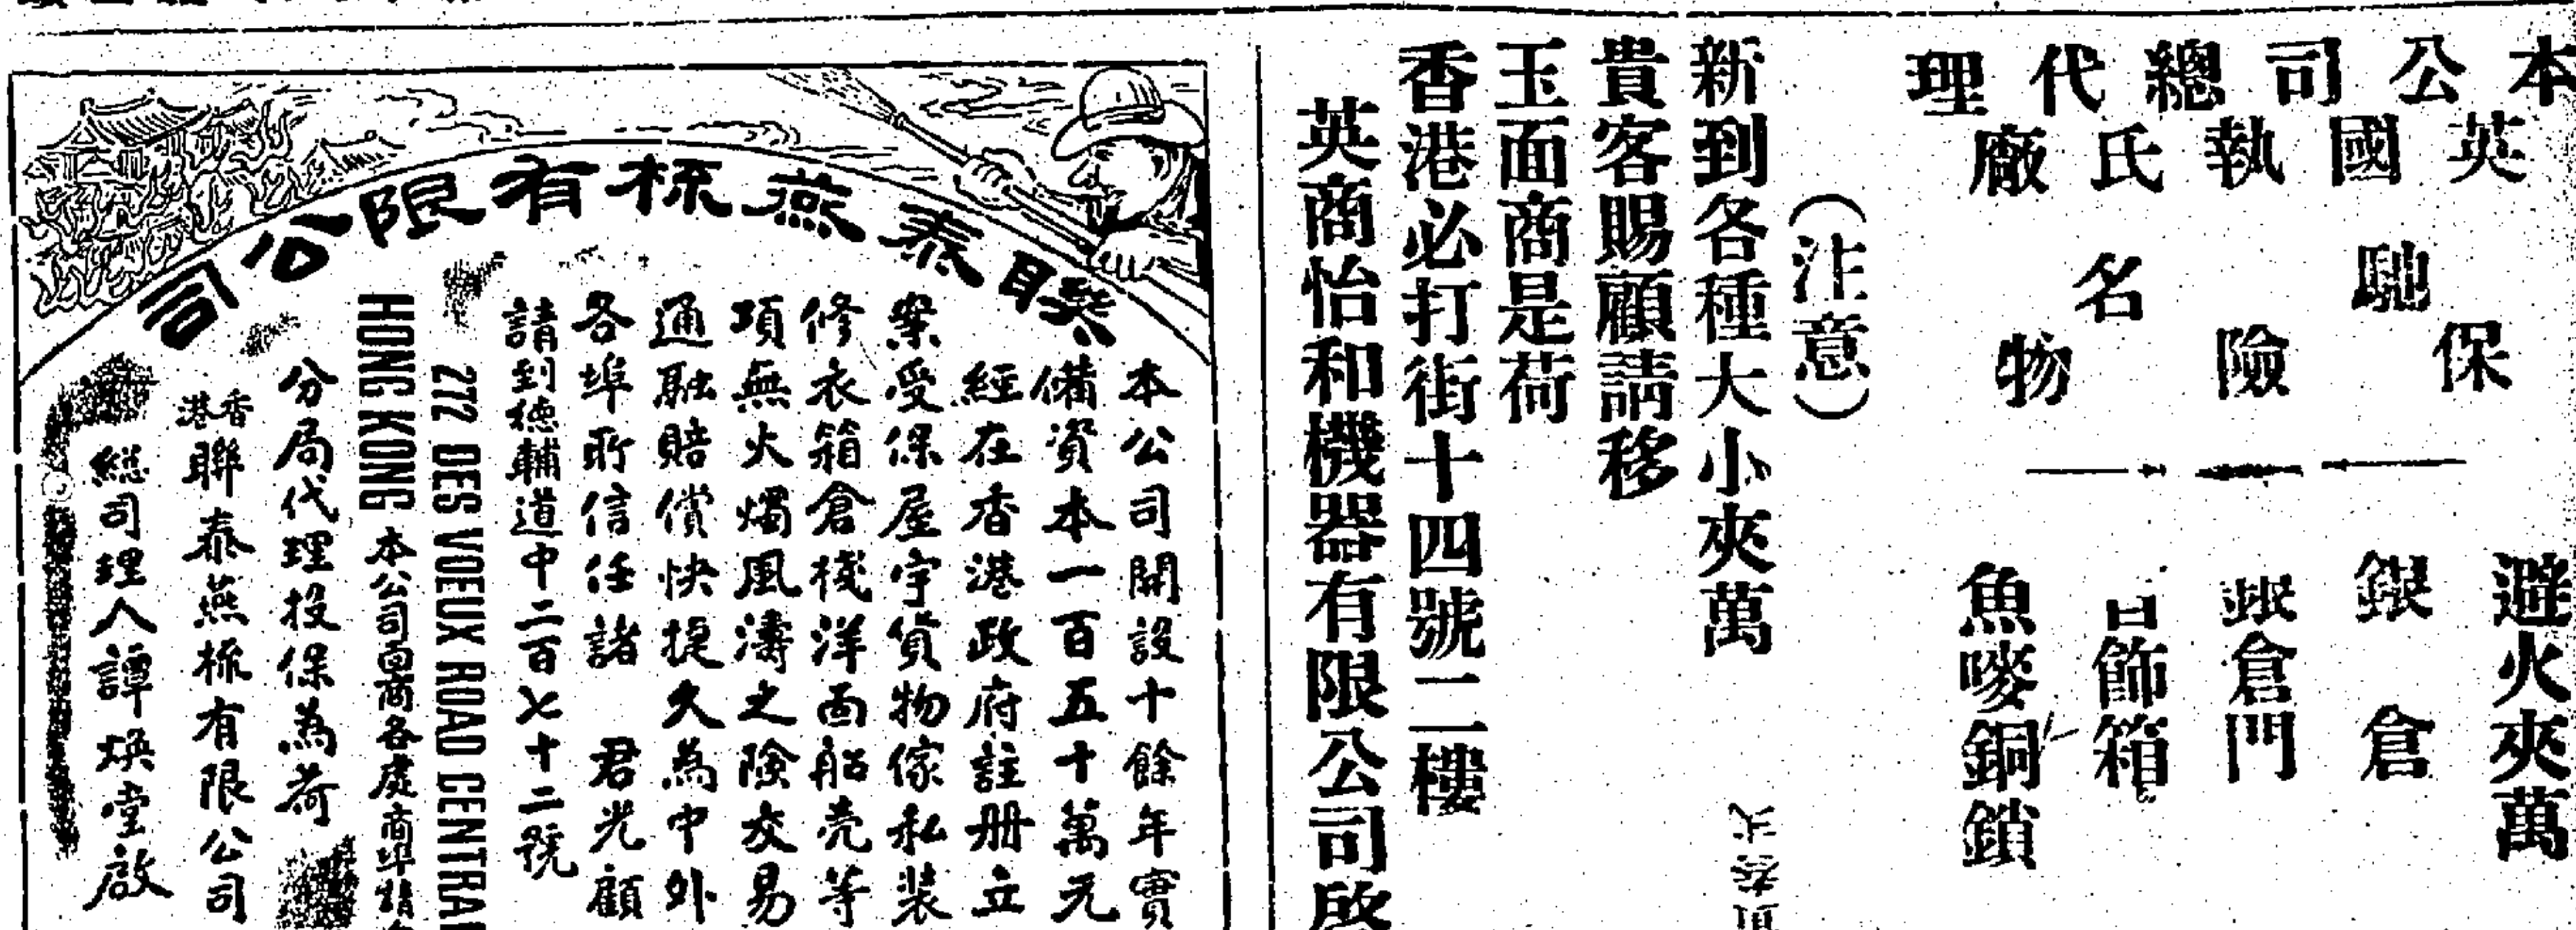 本公司總代理
英國執氏廠
馳名
保險物
避火夾萬
銀倉
銀倉門
飾箱
魚嘜銅鎖
（注意）
新到各種大小夾萬
貴客賜顧請移
玉面商是荷
香港必打街十四號二樓
英商怡和機器有限公司啓
聯泰燕梳有限公司
本公司開設十餘年實
備資本一百五十萬元
經在香港政府註册立
案受保屋宇貨物傢私裝
修衣箱倉棧洋面船壳等
項無火燭風濤之險交易
通融賠償快捷久為中外
各埠所信任諸 君光顧
請到德輔道中二百七十二號
272 DES VOEUX ROAD CENTRAL
HONG KONG 本公司面商各處商埠
分局代理投保為荷
香港聯泰燕梳有限公司
總司理人譚煥堂啟